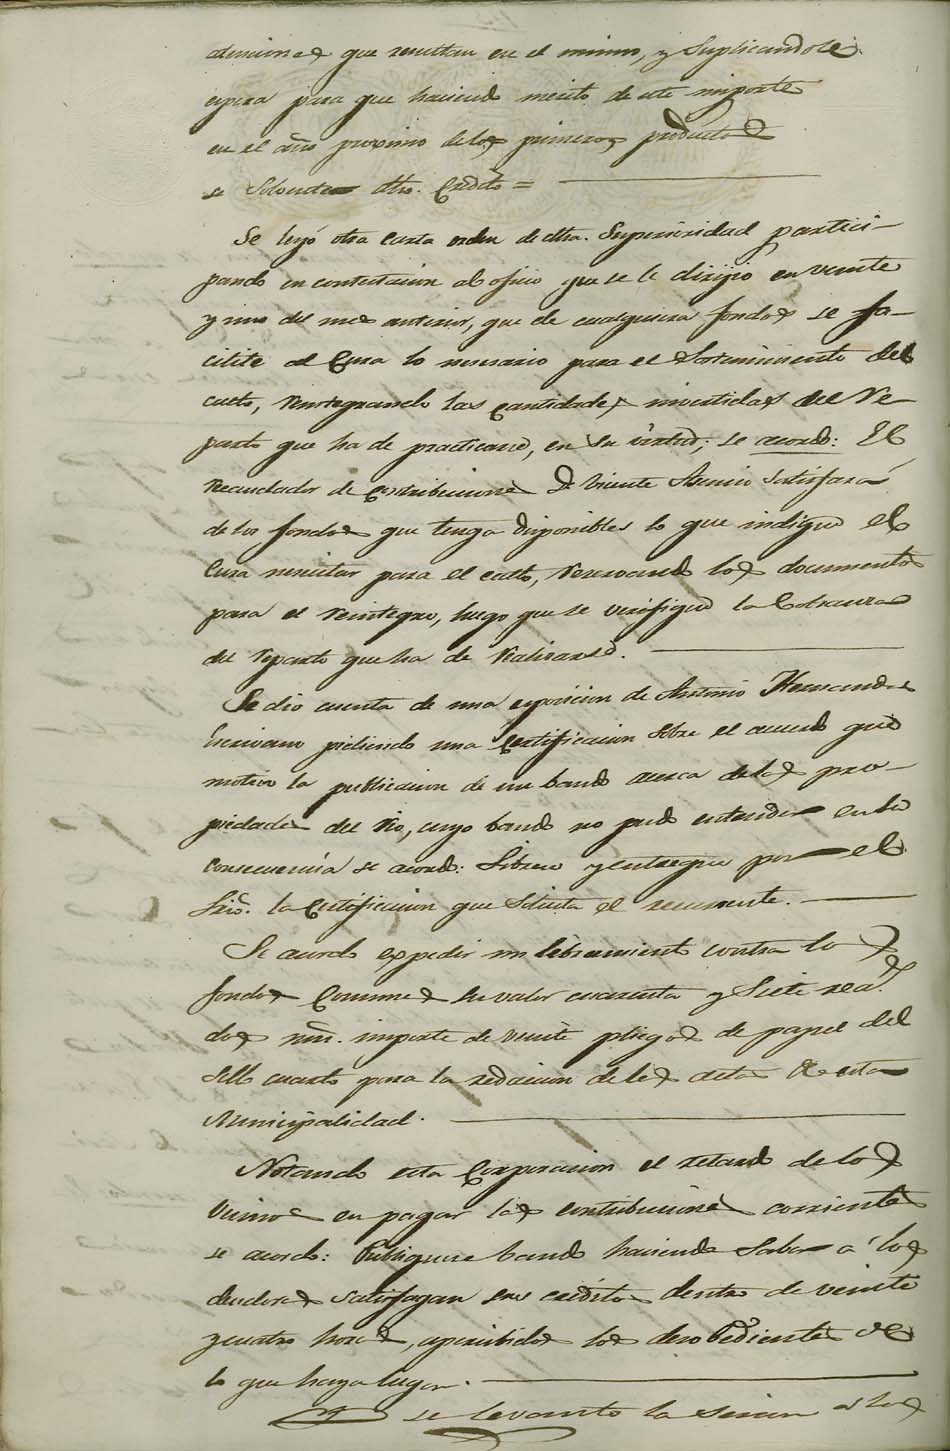 atenciones que resultan en el mismo, y Suplicandole
espera para que haciendo merito de este importe
en el año proximo de los primeros productos
se Solvente dho. Credito =
Se leyó otra carta orden de dha. Superioridad partici-
pando en contestacion al oficio que se le dirijio en veinte
y uno del mes anterior, que de cualquiera fondos se fa-
cilite al Cura lo necesario para el Sostenimiento del
culto, reintegrando las cantidades invertidas del Re-
parto que ha de practicarse, en su virtud; se acordó: El
Recaudador de Contribuciones D. Vicente Asensio Satisfará
de los fondos que tenga disponibles lo que indique el
Cura necesitar para el culto, reservando los documentos
para el reintegro, luego que se verifique la Cobranza
del reparto que ha de realizarse.
Se dió cuenta de una exposicion de Antonio Hernandes
Escrivano pidiendo una Certificacion Sobre el acuerdo que
motivo la publicacion de un bando acerca de las pro-
piedades del Rio, cuyo bando no pudo entender en su
consecuencia se acordó: Librese y entregue por el
Srio. la Certificacion que Solicita el recurrente.
Se acordó expedir un libramiento contra los
fondos Comunes su valor cuarenta y Siete rea.s
dos mrs. importe de veinte pliegos de papel del
Sello cuarto para la redaccion de las actas de esta
Municipalidad.
Notando esta Corporacion el retardo de los
Vecinos en pagar las contribuciones corrientes
se acordó: Publiquese bando haciendo Saber a los
deudores Satisfagan sus creditos dentro de veinte
y cuatro horas, apercibidos los desobedientes de
lo que haya lugar.
Se levanto la Sesion a las